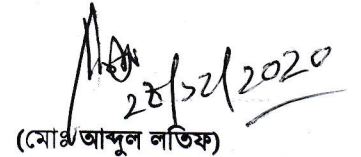 ২৮/১২/2020
(মোঃ আব্দুল লতিফ)